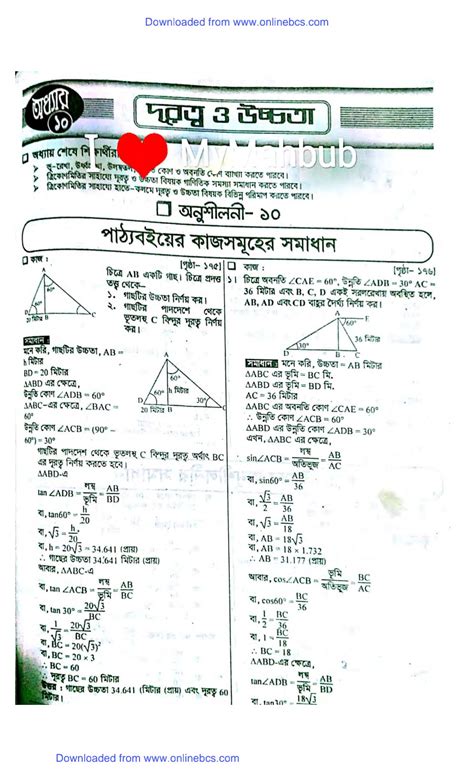 Downloaded from www.onlinebcs.com
অধ্যায়
১০
দূরত্ব ও উচ্চতা
I MyMahbub
অধ্যায় শেষে
ত্রিকোণমিতির সাহায্যে দূরত্ব ও উচ্চতা বিষয়ক গাণিতিক সমস্যা সমাধান করতে পারবে।
ত্রিকোণমিতির সাহায্যে হাতে-কলমে দূরত্ব ও উচ্চতা বিষয়ক বিভিন্ন পরিমাপ করতে পারবে।
অনুশীলনী- ১০
পাঠ্যবইয়ের কাজসমূহের সমাধান
কাজ :
[পৃষ্ঠা- ১৭৫]
চিত্রে AB একটি গাছ। চিত্রে প্রদত্ত
তথ্য থেকে–
১. গাছটির উচ্চতা নির্ণয় কর।
২. গাছটির পাদদেশ থেকে
ভূতলস্থ C বিন্দুর দূরত্ব নির্ণয়
কর।
A
60°
D
20 মিটার B
C
সমাধান :
মনে করি, গাছটির উচ্চতা, AB =
h মিটার
BD = 20 মিটার
△ABD এর ক্ষেত্রে,
উন্নতি কোণ ∠ADB = 60°
△ABC–এর ক্ষেত্রে, ∠BAC =
60°
উন্নতি কোণ ∠ACB = (90° –
60°) = 30°
A
60°
h মিটার
D 60° 30° C
20 মিটার B
গাছটির পাদদেশ থেকে ভূতলস্থ C বিন্দুর দূরত্ব অর্থাৎ BC
এর দূরত্ব নির্ণয় করতে হবে।
△ABD-এ
tan ∠ADB = লম্ব/ভূমি = AB/BD
বা, tan60° = h/20
বা, √3 = h/20
বা, h = 20√3 = 34.641 (প্রায়)
∴ গাছের উচ্চতা 34.641 মিটার (প্রায়)
আবার, △ABC-এ
বা, tan ∠ACB = লম্ব/ভূমি = AB/BC
বা, tan 30° = 20√3/BC
বা, 1/√3 = 20√3/BC
বা, BC = 20(√3)²
বা, BC = 20 × 3
∴ BC = 60
∴ দূরত্ব BC = 60 মিটার
উত্তর : গাছের উচ্চতা 34.641 (মিটার (প্রায়) এবং দূরত্ব 60
মিটার।
কাজ :
[পৃষ্ঠা- ১৭৬]
১। চিত্রে অবনতি ∠CAE = 60°, উন্নতি ∠ADB = 30° AC =
36 মিটার এবং B, C, D একই সরলরেখায় অবস্থিত হলে,
AB, AD এবং CD বাহুর দৈর্ঘ্য নির্ণয় কর।
A E
60°
36 মিটার
30°
D B C
সমাধান : মনে করি, উচ্চতা = AB মিটার
△ABC এর ভূমি = BC মি.
△ABD এর ভূমি = BD মি.
AC = 36 মিটার
△ABC এর অবনতি কোণ ∠CAE = 60°
∴ উন্নতি কোণ ∠ACB = 60°
△ABD এর উন্নতি কোণ ∠ADB = 30°
এখন, △ABC এর ক্ষেত্রে,
sin∠ACB = লম্ব/অতিভূজ = AB/AC
বা, sin60° = AB/36
বা, √3/2 = AB/36
বা, √3 = AB/18
বা, AB = 18√3
বা, AB = 18 × 1.732
∴ AB = 31.177 (প্রায়)
আবার, cos∠ACB = ভূমি/অতিভূজ = BC/AC
বা, cos60° = BC/36
বা, 1/2 = BC/36
বা, 1 = BC/18
∴ BC = 18
△ABD-এর ক্ষেত্রে,
tan∠ADB = লম্ব/ভূমি = AB/BD
বা, tan30° = 18√3
Downloaded from www.onlinebcs.com